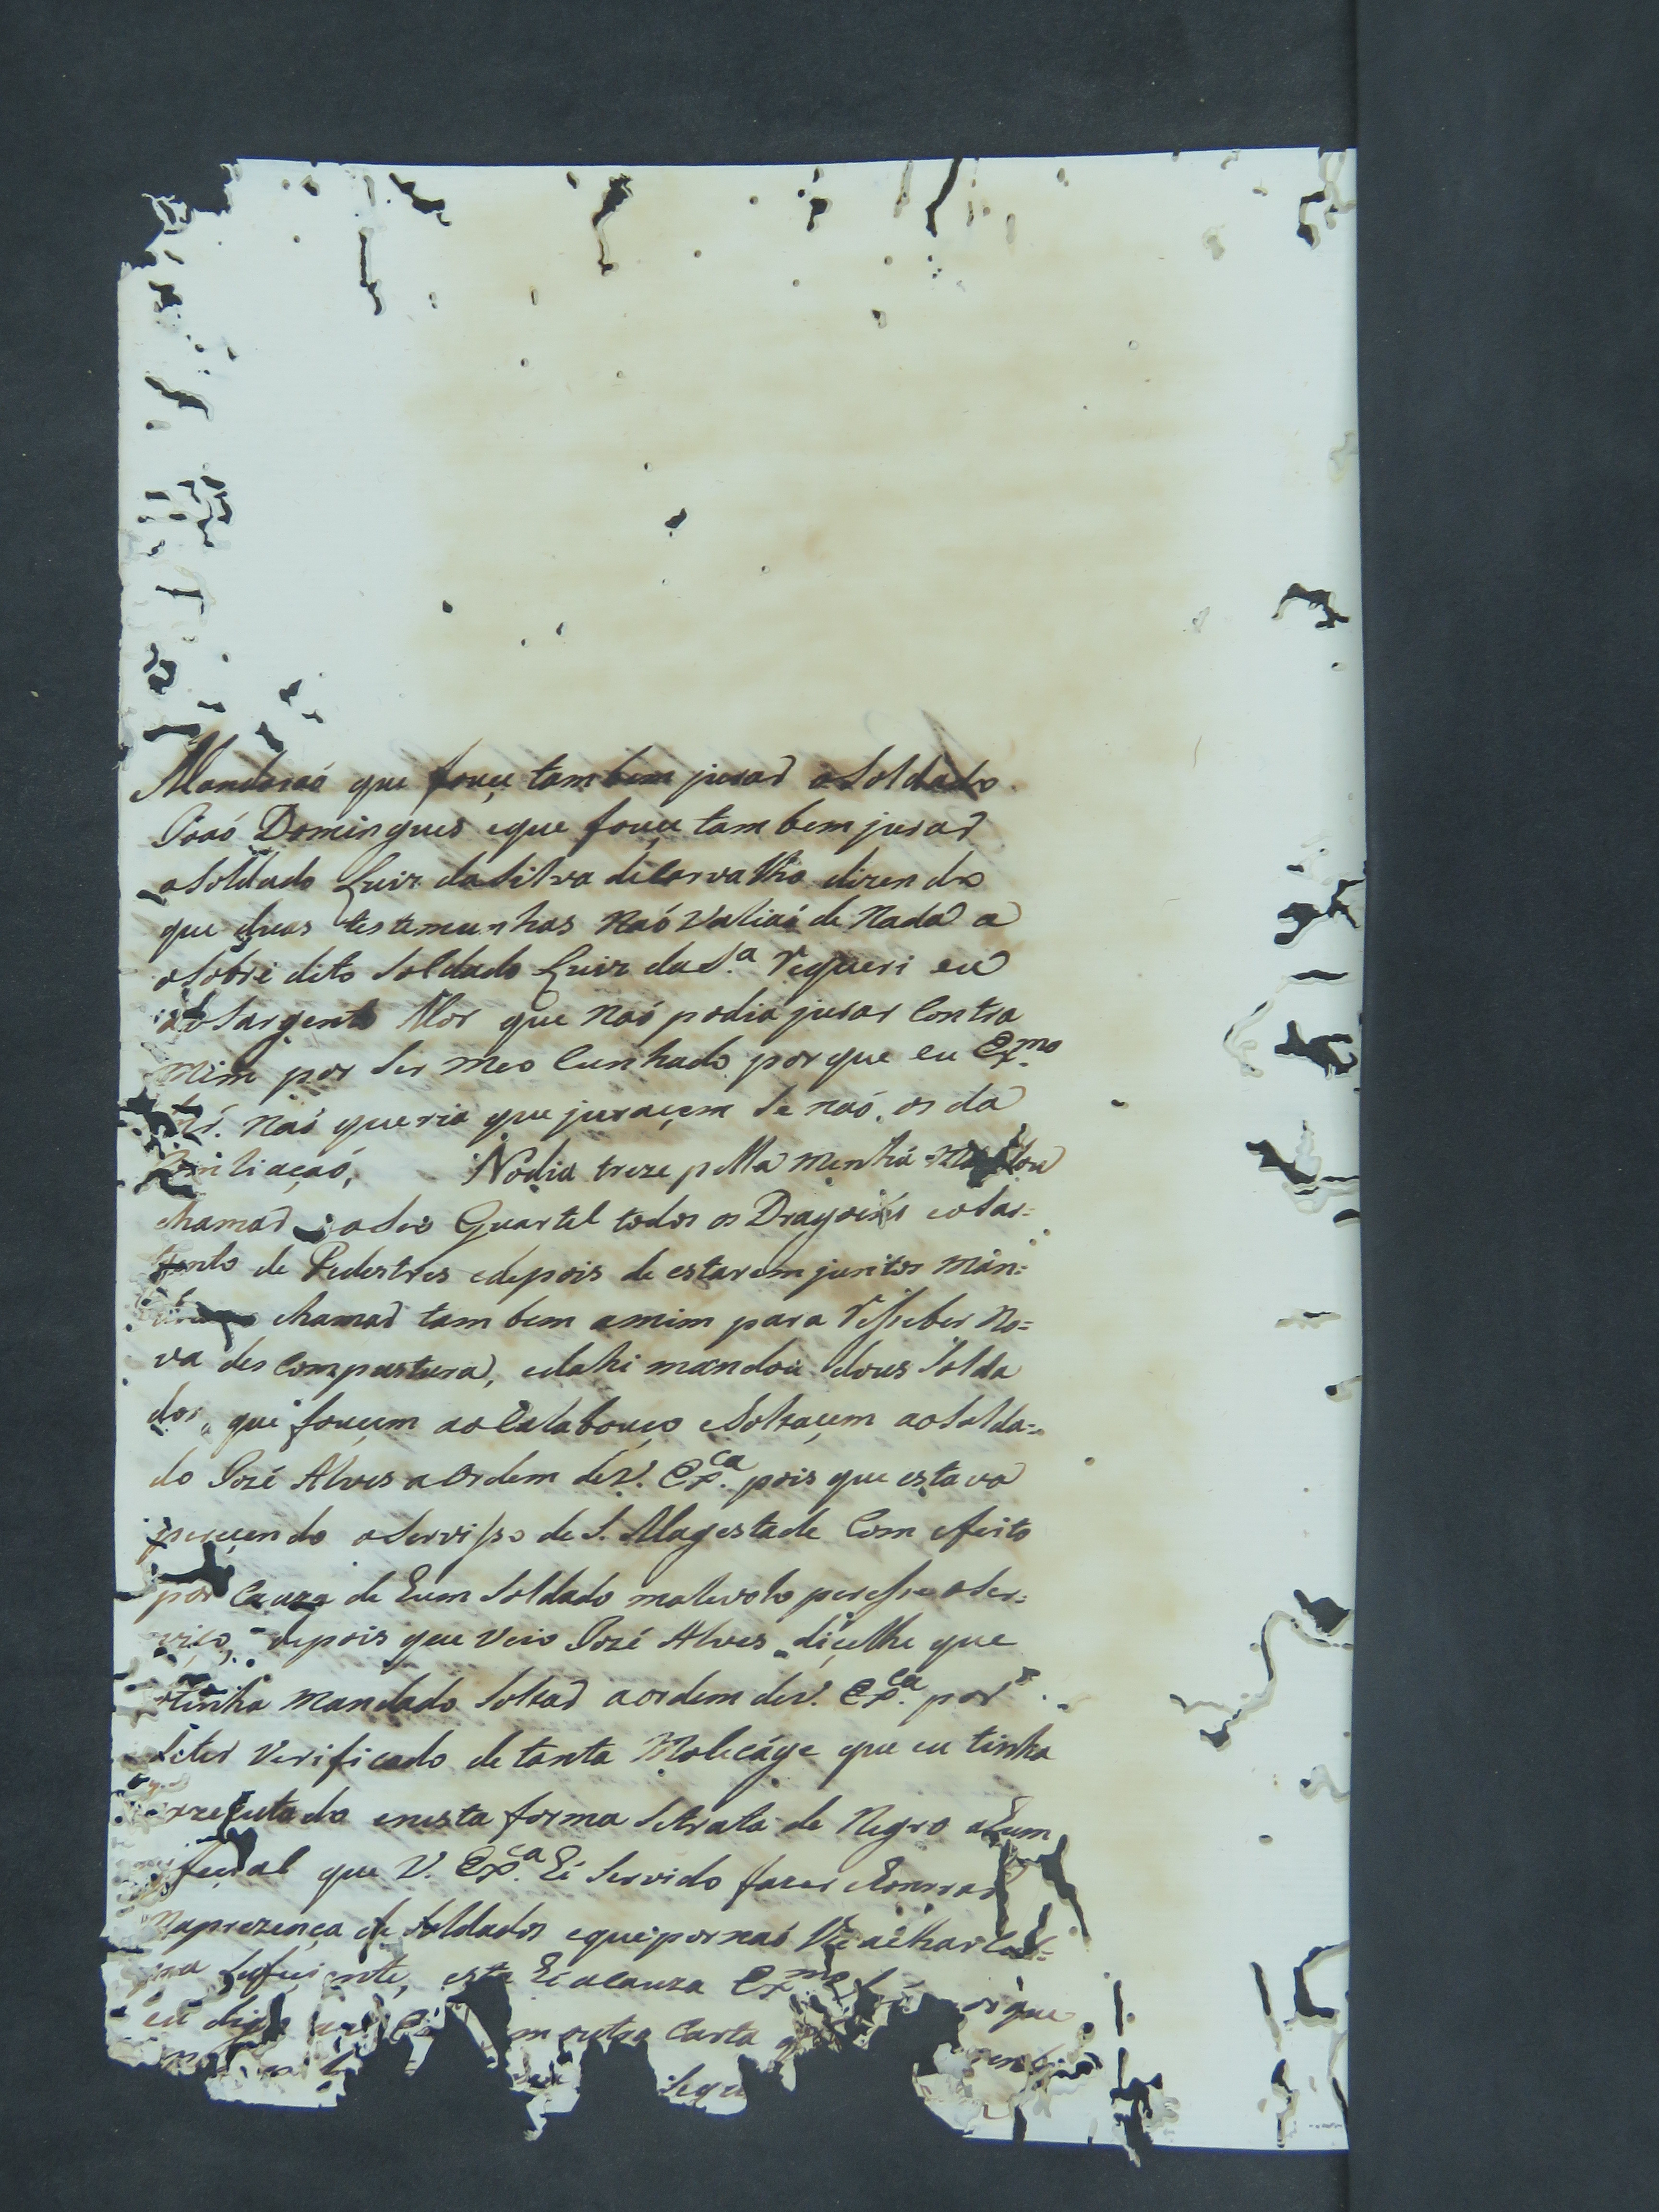 Mandaraó que foçe tambem jurar o Soldado
Joaó Domingues eque foçe tambem jurar
oSoldado Luiz daSilva deCarvalho dizendo
que duas testemunhas Naó Valiaó de Nada a
oSobre dito Soldado Luiz daS.ª Requeri eu
aoSargento Mor que Naó podia jurar Contra
Mim por Ser Meo Cunhado porque eu Ex.mo
Naó queria que juraçem Se naó os da
Nodia treze pella Menhá
chamar aoSeo Quartel todos os Dragoens eoSar=
gento de Pedestres edepois de estarem juntos Man=
chamar tambem amim para Resseber No=
va des Compustura, edahi mandou dous Solda
dos, que foçem aoCalabouço eSoltaçem aoSolda=
do José Alves a Ordem deV. Ex.ca pois que estava
pereçendo oServisso de S. Magestade Com efeito
por Cauza de hum Soldado malevolo peresse oSer=
viço, depois que veio José Alves diçelhe que
otinha Mandado Soltar aordem deV. Ex.ca por
Seter Verificado detanta Molecáge que eu tinha
exzecutado enesta forma Setrata de Negro ahum
que V. Ex.ca hé Servido fazer honrrar
Naprezença de Soldados equepornaó
esta hé aCauza Ex.mo
outra Carta